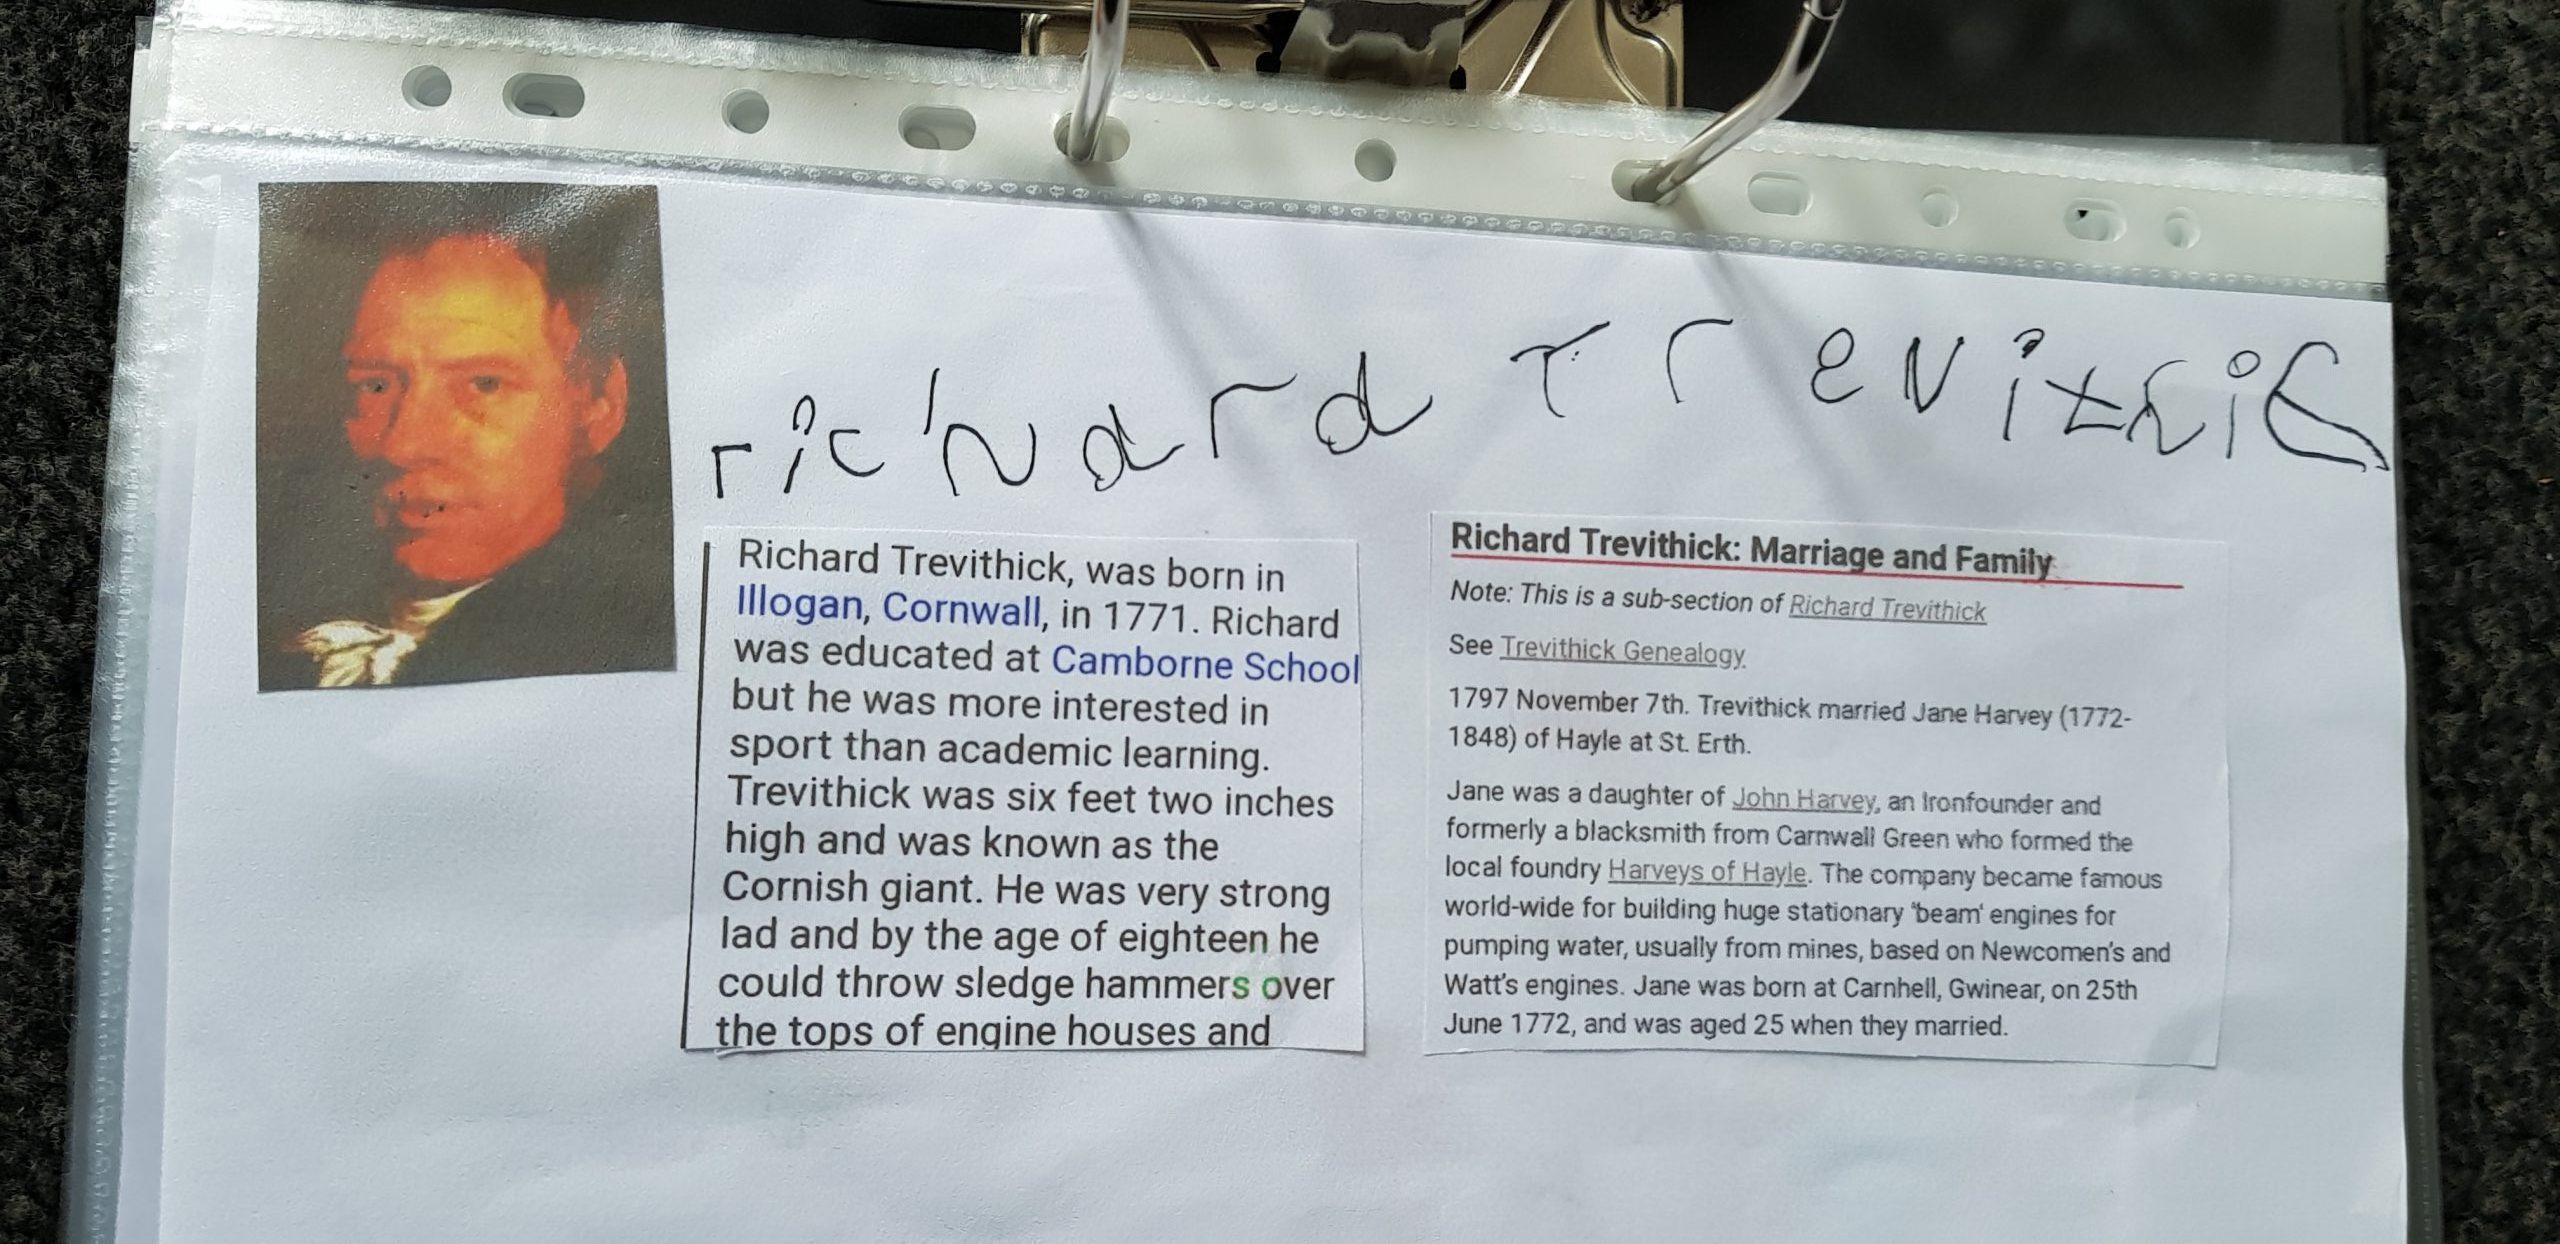 richard Trevithic
Richard Trevithick, was born in
Illogan, Cornwall, in 1771. Richard
was educated at Camborne School
but he was more interested in
sport than academic learning.
Trevithick was six feet two inches
high and was known as the
Cornish giant. He was very strong
lad and by the age of eighteen he
could throw sledge hammers over
the tops of engine houses and
Richard Trevithick: Marriage and Family
Note: This is a sub-section of Richard Trevithick
See Trevithick Genealogy.
1797 November 7th. Trevithick married Jane Harvey (1772-
1848) of Hayle at St. Erth.
Jane was a daughter of John Harvey, an Ironfounder and
formerly a blacksmith from Carnwall Green who formed the
local foundry Harveys of Hayle. The company became famous
world-wide for building huge stationary 'beam' engines for
pumping water, usually from mines, based on Newcomen's and
Watt's engines. Jane was born at Carnhell, Gwinear, on 25th
June 1772, and was aged 25 when they married.